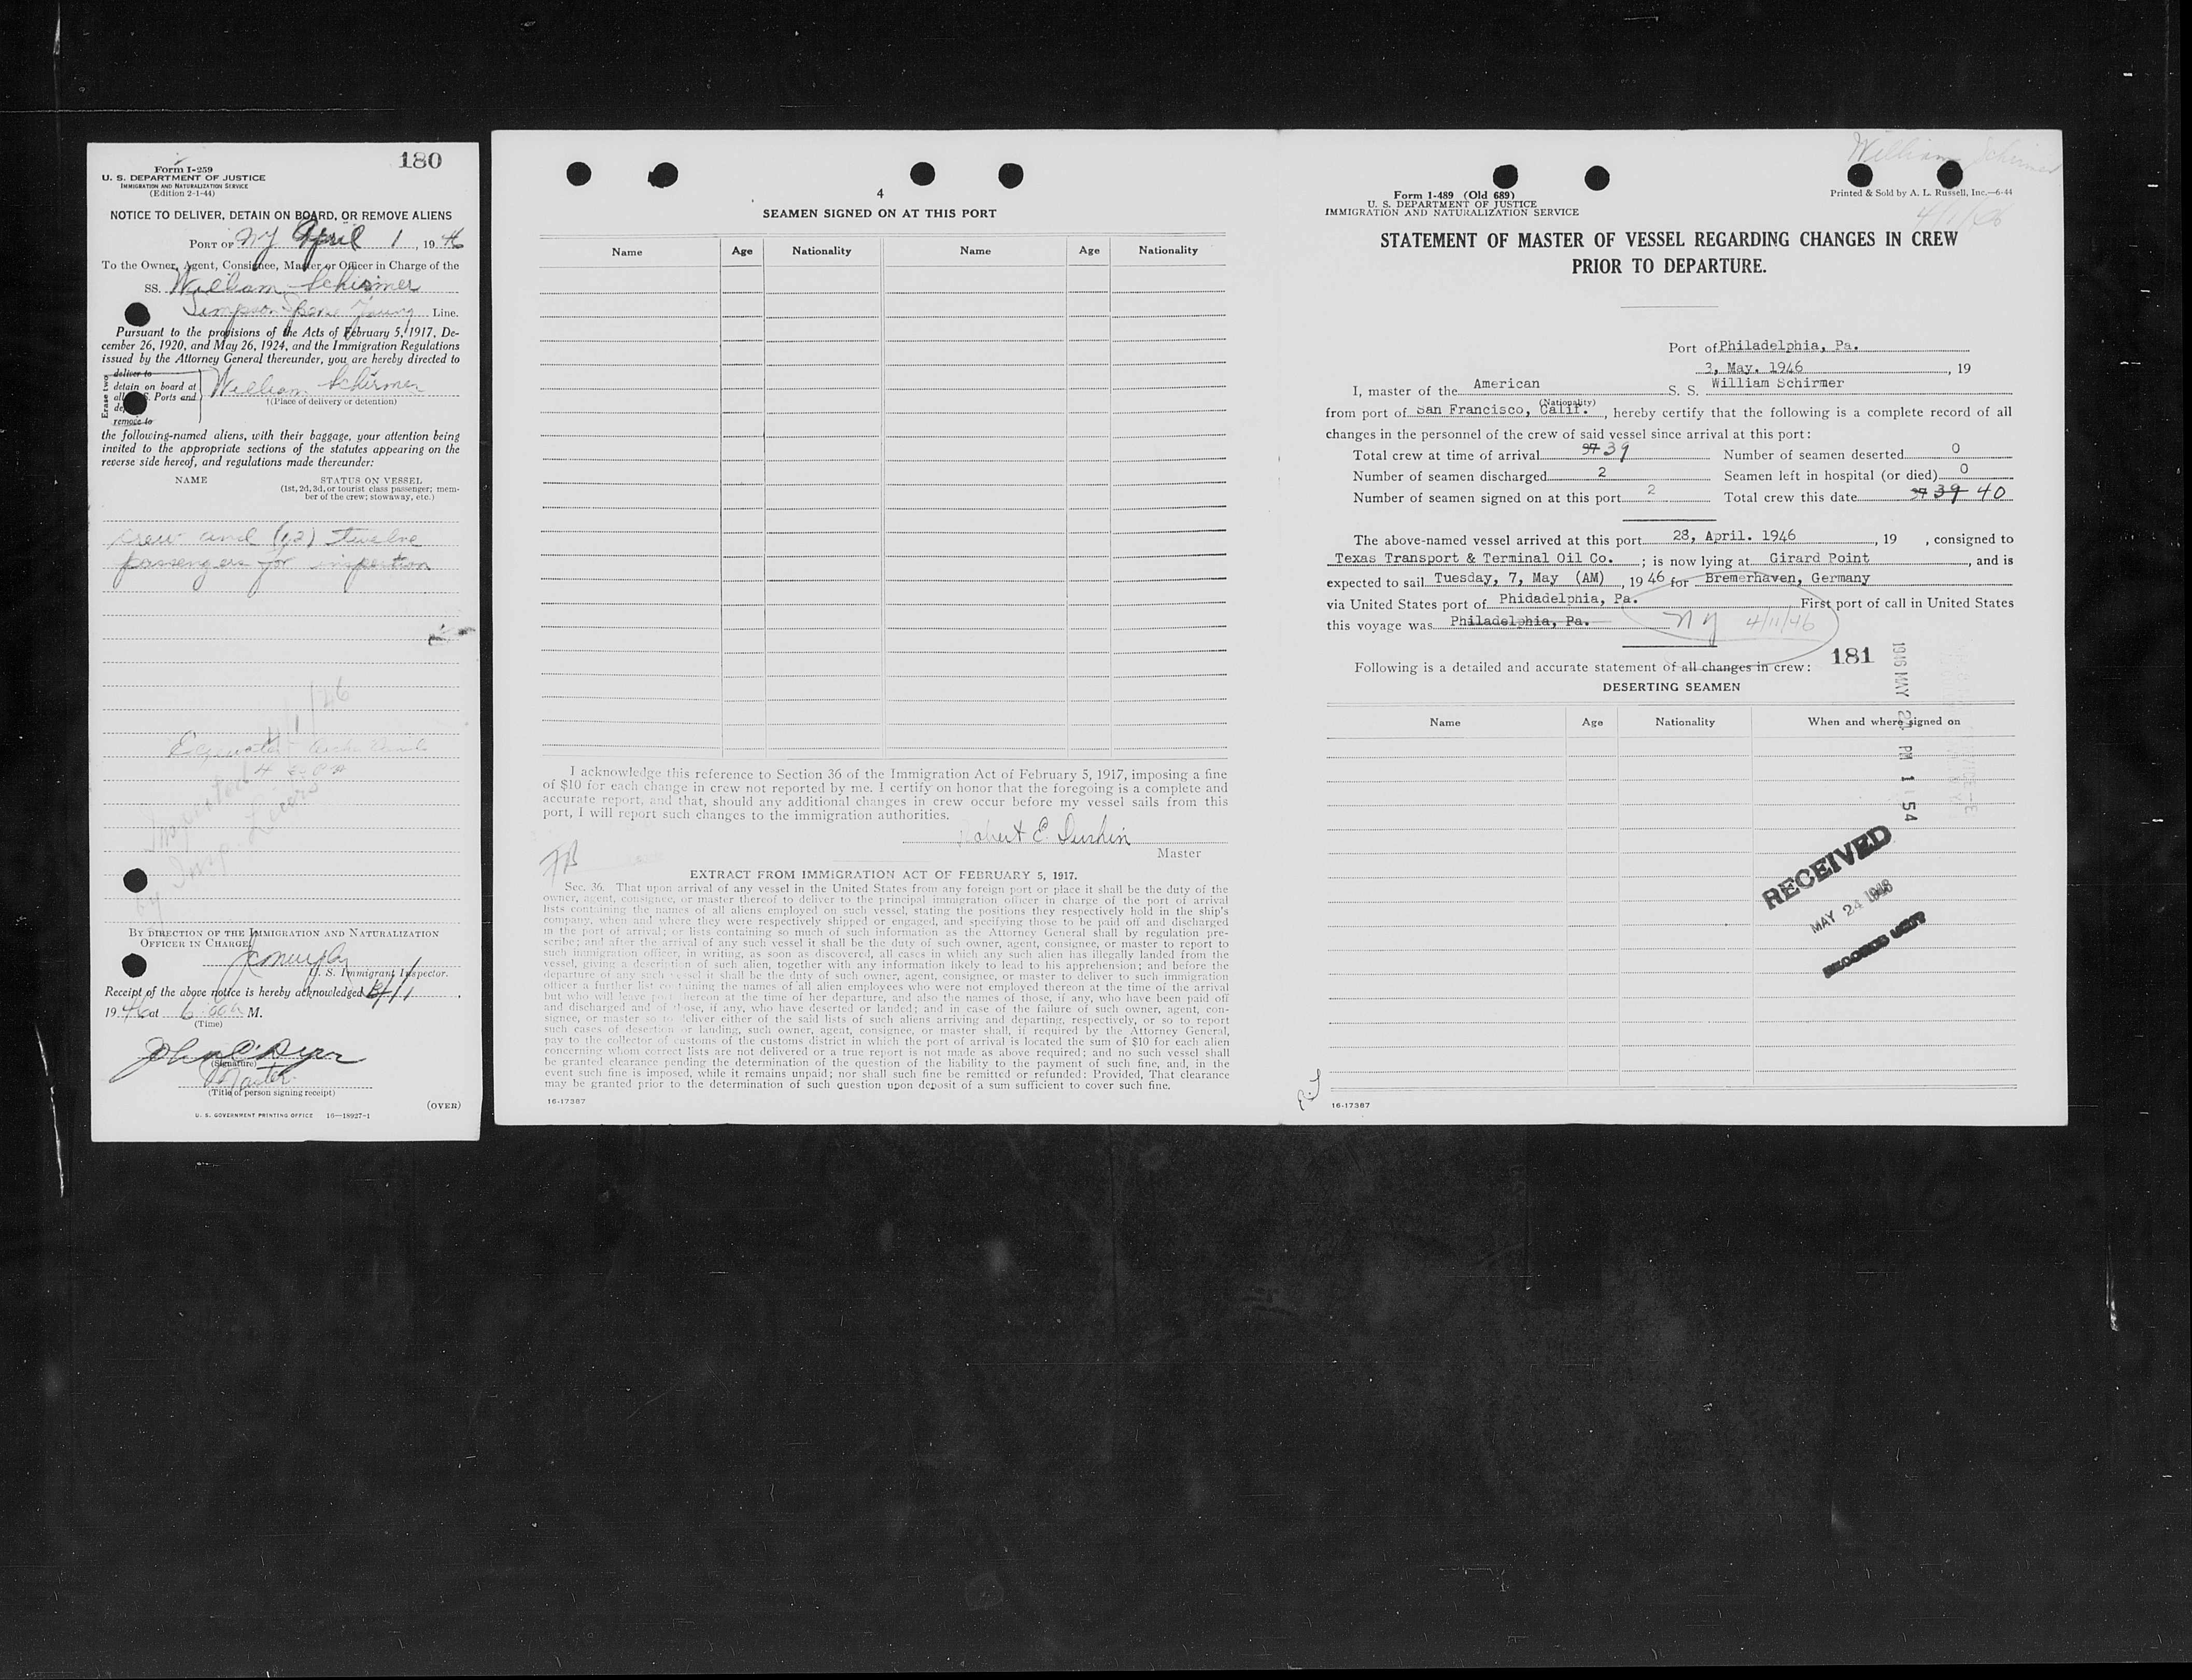 180
Form I-259
U. S. DEPARTMENT OF JUSTICE
IMMIGRATION AND NATURALIZATION SERVICE
(Edition 2-1-44)
NOTICE TO DELIVER, DETAIN ON BOARD, OR REMOVE ALIENS
PORT OF NY April 1, 1946
To the Owner, Agent, Consignee, Master or Officer in Charge of the
SS. William Schirmer
Line.
Pursuant to the provisions of the Acts of February 5, 1917, De-
cember 26, 1920, and May 26, 1924, and the Immigration Regulations
issued by the Attorney General thereunder, you are hereby directed to
Erase two
deliver to
detain on board at
all U. S. Ports and
remove to
William Schirmer
†(Place of delivery or detention)
the following-named aliens, with their baggage, your attention being
invited to the appropriate sections of the statutes appearing on the
reverse side hereof, and regulations made thereunder:
NAME STATUS ON VESSEL
(1st, 2d, 3d, or tourist class passenger; mem-
ber of the crew; stowaway, etc.)
crew and (12) twelve
passengers for inspection
4/1/46
Inspected
by Insp.
BY DIRECTION OF THE IMMIGRATION AND NATURALIZATION
OFFICER IN CHARGE.
U. S. Immigrant Inspector.
Receipt of the above notice is hereby acknowledged 4/1,
1946 at 6 00 M.
(Time)
(Signature)
Master
(Title of person signing receipt)
(OVER)
U. S. GOVERNMENT PRINTING OFFICE 16—18927-1
4
SEAMEN SIGNED ON AT THIS PORT
Name Age Nationality Name Age Nationality
I acknowledge this reference to Section 36 of the Immigration Act of February 5, 1917, imposing a fine
of $10 for each change in crew not reported by me. I certify on honor that the foregoing is a complete and
accurate report, and that, should any additional changes in crew occur before my vessel sails from this
port, I will report such changes to the immigration authorities.
Robert E. Durkin
Master
EXTRACT FROM IMMIGRATION ACT OF FEBRUARY 5, 1917.
Sec. 36. That upon arrival of any vessel in the United States from any foreign port or place it shall be the duty of the
owner, agent, consignee, or master thereof to deliver to the principal immigration officer in charge of the port of arrival
lists containing the names of all aliens employed on such vessel, stating the positions they respectively hold in the ship's
company, when and where they were respectively shipped or engaged, and specifying those to be paid off and discharged
in the port of arrival; or lists containing so much of such information as the Attorney General shall by regulation pre-
scribe; and after the arrival of any such vessel it shall be the duty of such owner, agent, consignee, or master to report to
such immigration officer, in writing, as soon as discovered, all cases in which any such alien has illegally landed from the
vessel, giving a description of such alien, together with any information likely to lead to his apprehension; and before the
departure of any such vessel it shall be the duty of such owner, agent, consignee, or master to deliver to such immigration
officer a further list containing the names of all alien employees who were not employed thereon at the time of the arrival
but who will leave port thereon at the time of her departure, and also the names of those, if any, who have been paid off
and discharged and of those, if any, who have deserted or landed; and in case of the failure of such owner, agent, con-
signee, or master so to deliver either of the said lists of such aliens arriving and departing, respectively, or so to report
such cases of desertion or landing, such owner, agent, consignee, or master shall, if required by the Attorney General,
pay to the collector of customs of the customs district in which the port of arrival is located the sum of $10 for each alien
concerning whom correct lists are not delivered or a true report is not made as above required; and no such vessel shall
be granted clearance pending the determination of the question of the liability to the payment of such fine, and, in the
event such fine is imposed, while it remains unpaid; nor shall such fine be remitted or refunded: Provided, That clearance
may be granted prior to the determination of such question upon deposit of a sum sufficient to cover such fine.
16-17387
William Schirmer
Form 1-489 (Old 689)
U. S. DEPARTMENT OF JUSTICE
IMMIGRATION AND NATURALIZATION SERVICE
Printed & Sold by A. L. Russell, Inc.—6-44
4/1/46
STATEMENT OF MASTER OF VESSEL REGARDING CHANGES IN CREW
PRIOR TO DEPARTURE.
Port of Philadelphia, Pa.
3, May. 1946, 19
I, master of the American S. S. William Schirmer
(Nationality)
from port of San Francisco, Calif., hereby certify that the following is a complete record of all
changes in the personnel of the crew of said vessel since arrival at this port:
Total crew at time of arrival 37 39 Number of seamen deserted 0
Number of seamen discharged 2 Seamen left in hospital (or died) 0
Number of seamen signed on at this port 2 Total crew this date 37 39 40
The above-named vessel arrived at this port 28, April. 1946, 19 , consigned to
Texas Transport & Terminal Oil Co. ; is now lying at Girard Point, and is
expected to sail Tuesday, 7, May (AM), 1946 for Bremerhaven, Germany
via United States port of Phidadelphia, Pa. First port of call in United States
this voyage was Philadelphia, Pa. NY 4/11/46
Following is a detailed and accurate statement of all changes in crew: 181
DESERTING SEAMEN
Name Age Nationality When and where signed on
1946 MAY 21 PM 1 54
RECEIVED
MAY 24 1946
RECORDS UNIT
16-17387